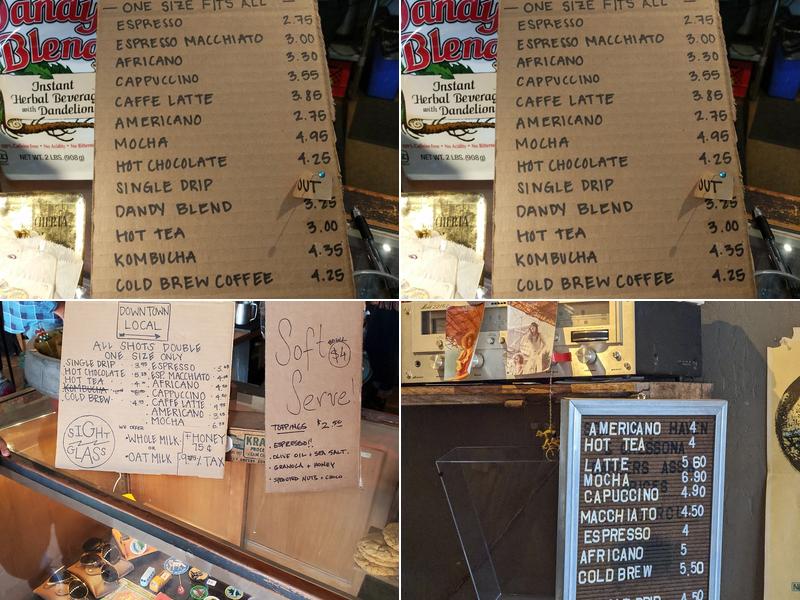 — ONE SIZE FITS ALL —
ESPRESSO 2.75
ESPRESSO MACCHIATO 3.00
AFRICANO 3.30
CAPPUCCINO 3.55
CAFFE LATTE 3.85
AMERICANO 2.75
MOCHA 4.95
HOT CHOCOLATE 4.25
SINGLE DRIP OUT
DANDY BLEND 3.25
HOT TEA 3.00
KOMBUCHA 4.35
COLD BREW COFFEE 4.25
Dandy
Blend
Instant
Herbal Beverage
with Dandelion
NET WT. 2 LBS. (908g)
— ONE SIZE FITS ALL —
ESPRESSO 2.75
ESPRESSO MACCHIATO 3.00
AFRICANO 3.30
CAPPUCCINO 3.55
CAFFE LATTE 3.85
AMERICANO 2.75
MOCHA 4.95
HOT CHOCOLATE 4.25
SINGLE DRIP OUT
DANDY BLEND 3.25
HOT TEA 3.00
KOMBUCHA 4.35
COLD BREW COFFEE 4.25
Dandy
Blend
Instant
Herbal Beverage
with Dandelion
NET WT. 2 LBS. (908g)
DOWNTOWN
LOCAL
ALL SHOTS DOUBLE
ONE SIZE ONLY
SINGLE DRIP
HOT CHOCOLATE
HOT TEA
KOMBUCHA
COLD BREW
ESPRESSO
ESP. MACCHIATO
AFRICANO
CAPPUCCINO
CAFFE LATTE
AMERICANO
MOCHA
SIGHT
GLASS
WE OFFER
•WHOLE MILK•
OR
•OAT MILK
+HONEY
75¢
TAX
Soft $4
Serve!
TOPPINGS $2.50
• ESPRESSO!!
• OLIVE OIL + SEA SALT.
• GRANOLA + HONEY
• SPROUTED NUTS + CHOCO
AMERICANO 4
HOT TEA 4
LATTE 5 60
MOCHA 6.90
CAPUCCINO 4.90
MACCHIATO 4.50
ESPRESSO 4
AFRICANO 5
COLD BREW 5.50
4.50